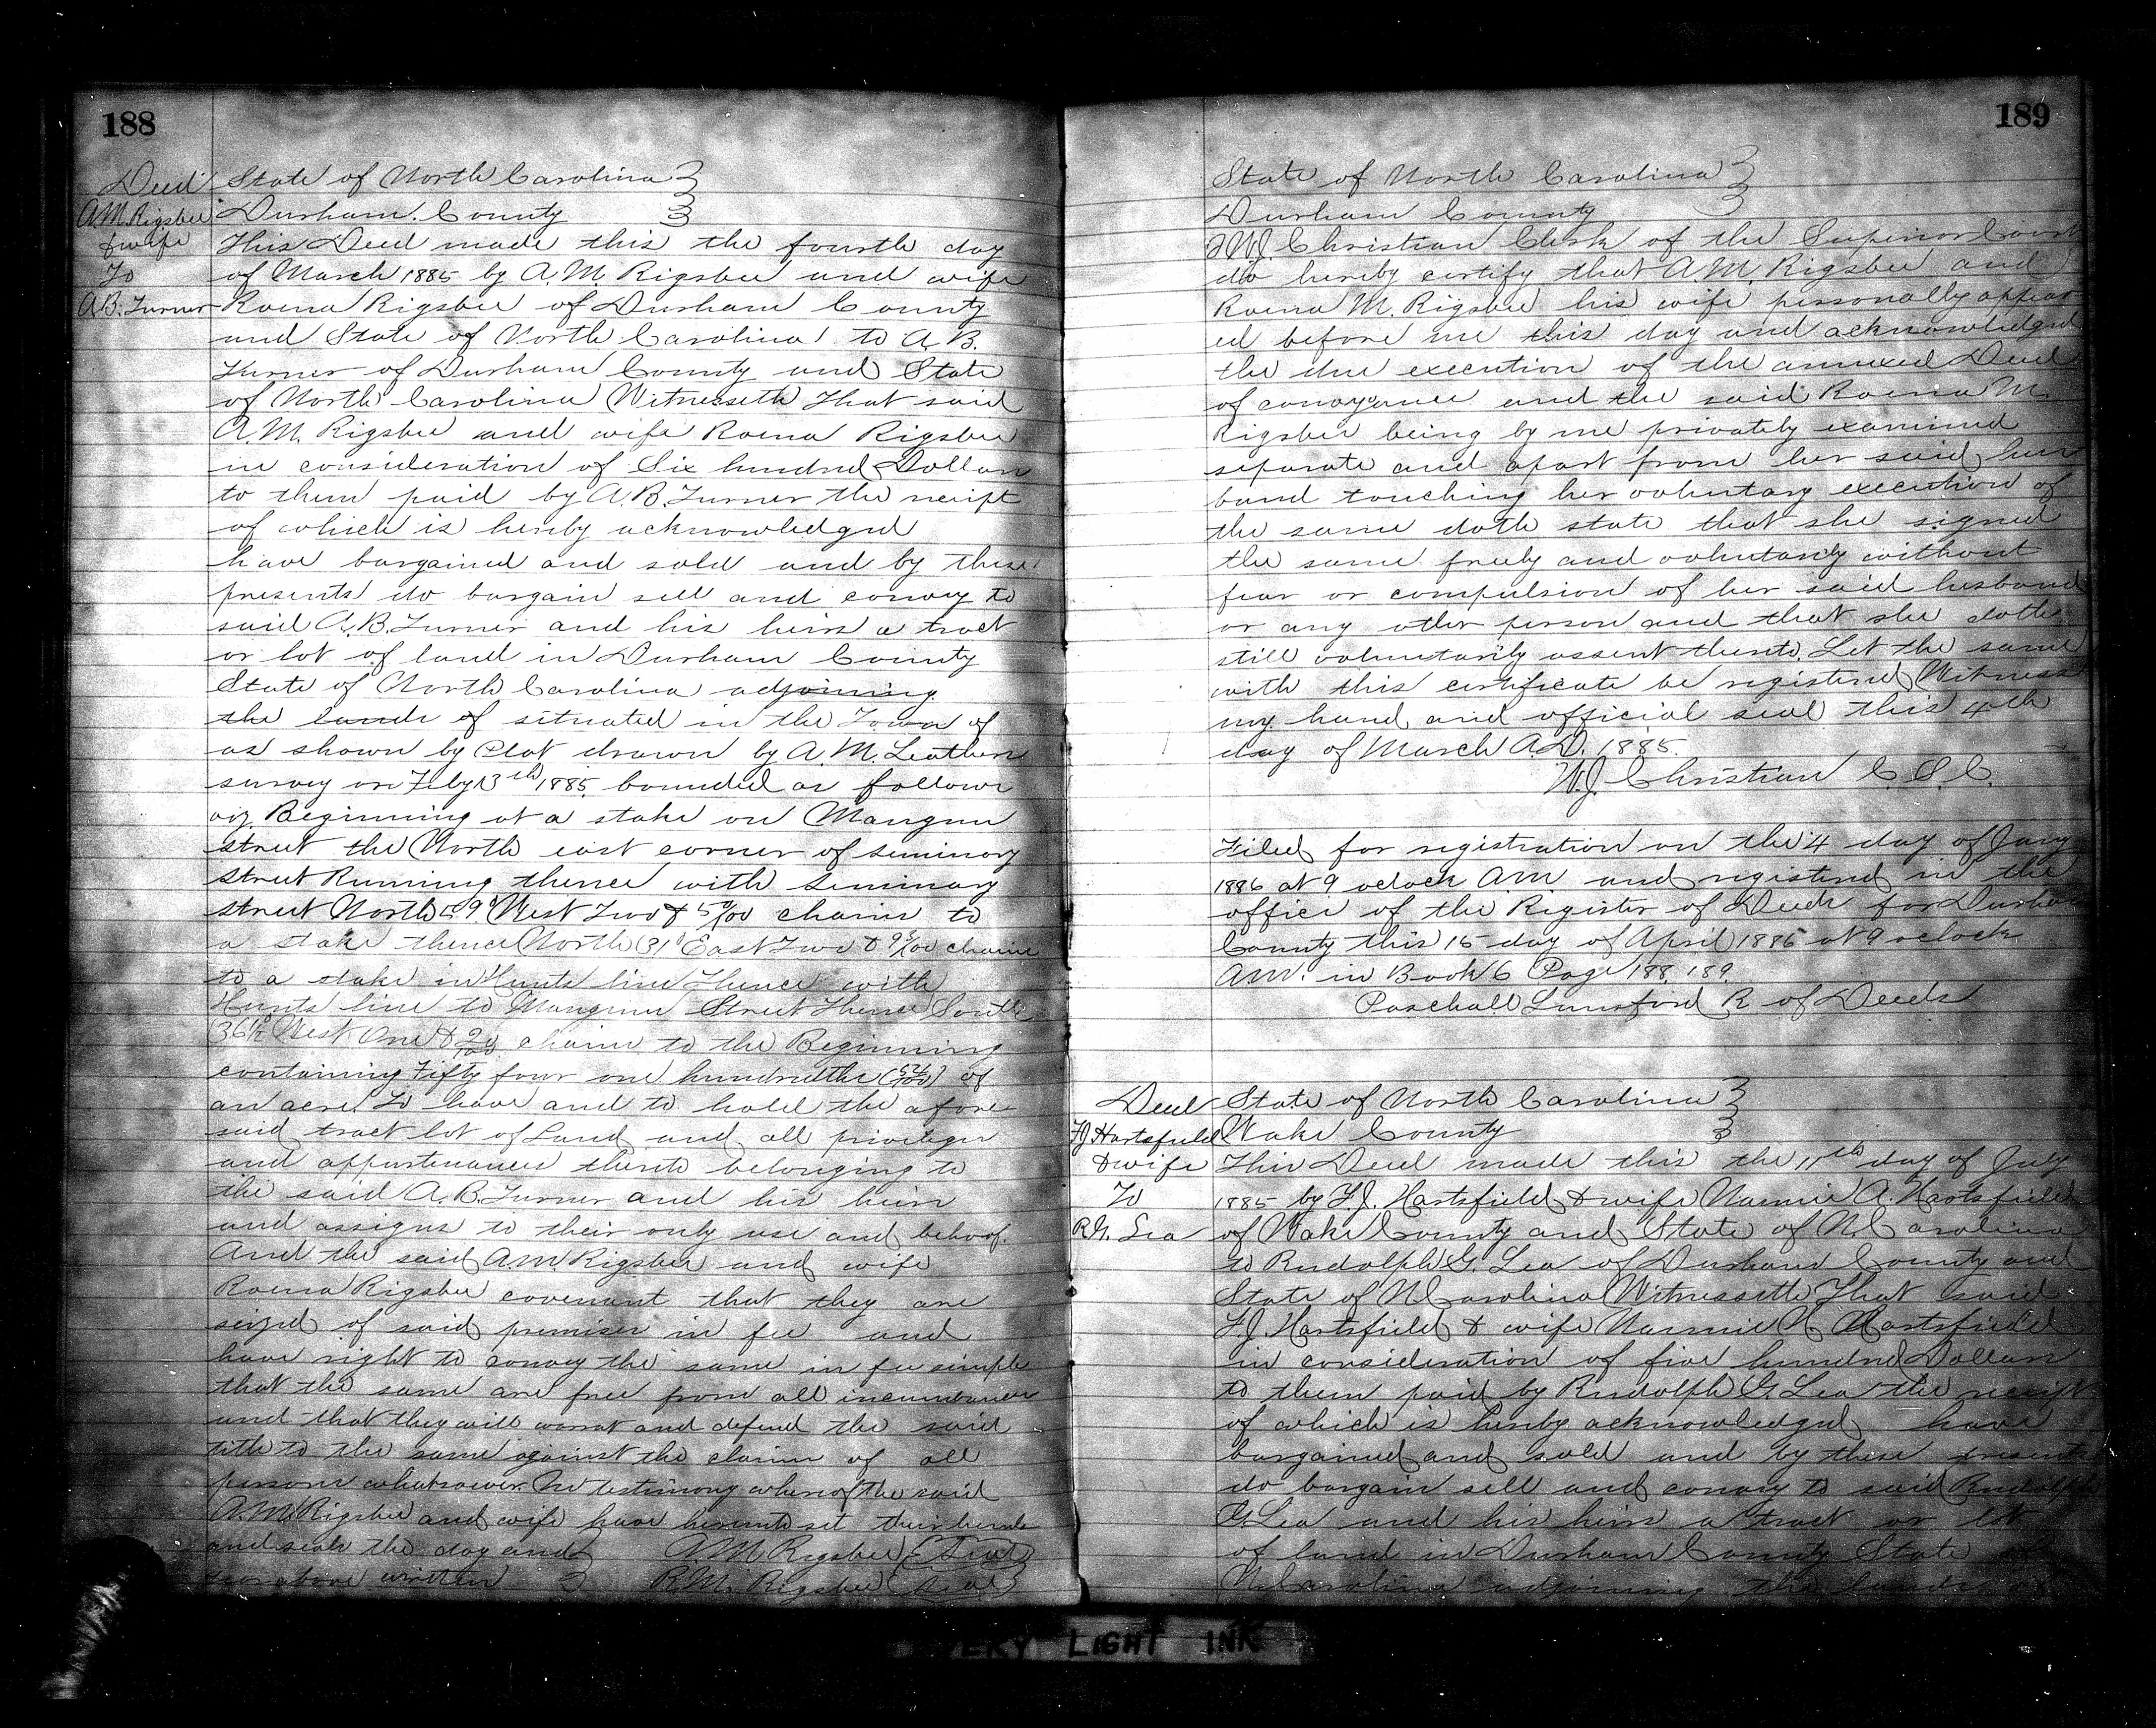 188
Deed
A.M. Rigsbee
& wife
To
A.B. Turner
State of North Carolina
Durham County
This Deed made this the fourth day
of March 1885 by A.M. Rigsbee and wife
Roena Rigsbee of Durham County
and State of North Carolina to A.B.
Turner of Durham County and State
of North Carolina Witnesseth That said
A.M. Rigsbee and wife Roena Rigsbee
in consideration of Six hundred Dollars
to them paid by A.B. Turner the receipt
of which is hereby acknowledged
have bargained and sold and by these
presents do bargain sell and convey to
said A.B. Turner and his heirs a tract
or lot of land in Durham County
State of North Carolina adjoining
the lands of situated in the Town of
as shown by Plat drawn by A.M. Leathers
survey on Feby 13th 1885 bounded as follows
viz. Beginning at a stake on Mangum
street the North east corner of seminary
street Running thence with Seminary
street North 59° West Two & 50/100 chains to
a stake thence North 31° East Two & 93/100 chains
to a stake in Hunts line Thence with
Hunts line to Mangum Street Thence South
36 1/2° West One & chains to the Beginning
containing Fifty four one hundredths (54/100) of
an acre. To have and to hold the afore
said tract lot of Land and all privileges
and appurtenances thereto belonging to
the said A.B. Turner and his heirs
and assigns to their only use and behoof.
And the said A.M. Rigsbee and wife
Roena Rigsbee covenant that they are
seized of said premises in fee and
have right to convey the same in fee simple
that the same are free from all incumbances
and that they will warrat and defend the said
title to the same against the claims of all
persons whatsoever. In testimony whereof the said
A.M. Rigsbee and wife have hereunto set their hands
and seals the day and A.M. Rigsbee (Seal)
year above written R.M. Rigsbee (Seal)
189
State of North Carolina
Durham County
I W.J. Christian Clerk of the Superior Court
do hereby certify that A.M. Rigsbee and
Roena M. Rigsbee his wife personally appear
ed before me this day and acknowledged
the due execution of the annexed Deed
of conveyance and the said Roena M.
Rigsbee being by me privately examined
separate and apart from her said hus
band touching her voluntary execution of
the same doth state that she signed
the same freely and voluntarily without
fear or compulsion of her said husband
or any other person and that she doth
still voluntarily assent thereto. Let the same
with this certificate be registered Witness
my hand and official seal this 4th
day of March A.D. 1885.
W.J. Christian C.S.C.
Filed for registration on the 4 day of Jany
1886 at 9 oclock A.M. and registered in the
office of the Register of Deeds for Durham
County this 15 day of April 1886 at 9 oclock
A.M. in Book 6 Page 188, 189.
Paschall Lunsford R of Deeds
Deed
F.J. Hartsfield
& wife
To
R.G. Lea
State of North Carolina
Wake County
This Deed made this the 11th day of July
1885 by F.J. Hartsfield & wife Nannie A. Hartsfield
of Wake County and State of N. Carolina
to Rudolph G. Lea of Durham County and
State of N Carolina Witnesseth That said
F.J. Hartsfield & wife Nannie Hartsfield
in consideration of five hundred Dollars
to them paid by Rudolph G. Lea the receipt
of which is hereby acknowledged have
bargained and sold and by these presents
do bargain sell and convey to said Rudolph
G. Lea and his heirs a tract or lot
of land in Durham County State of
N. Carolina adjoining the lands
VERY LIGHT INK